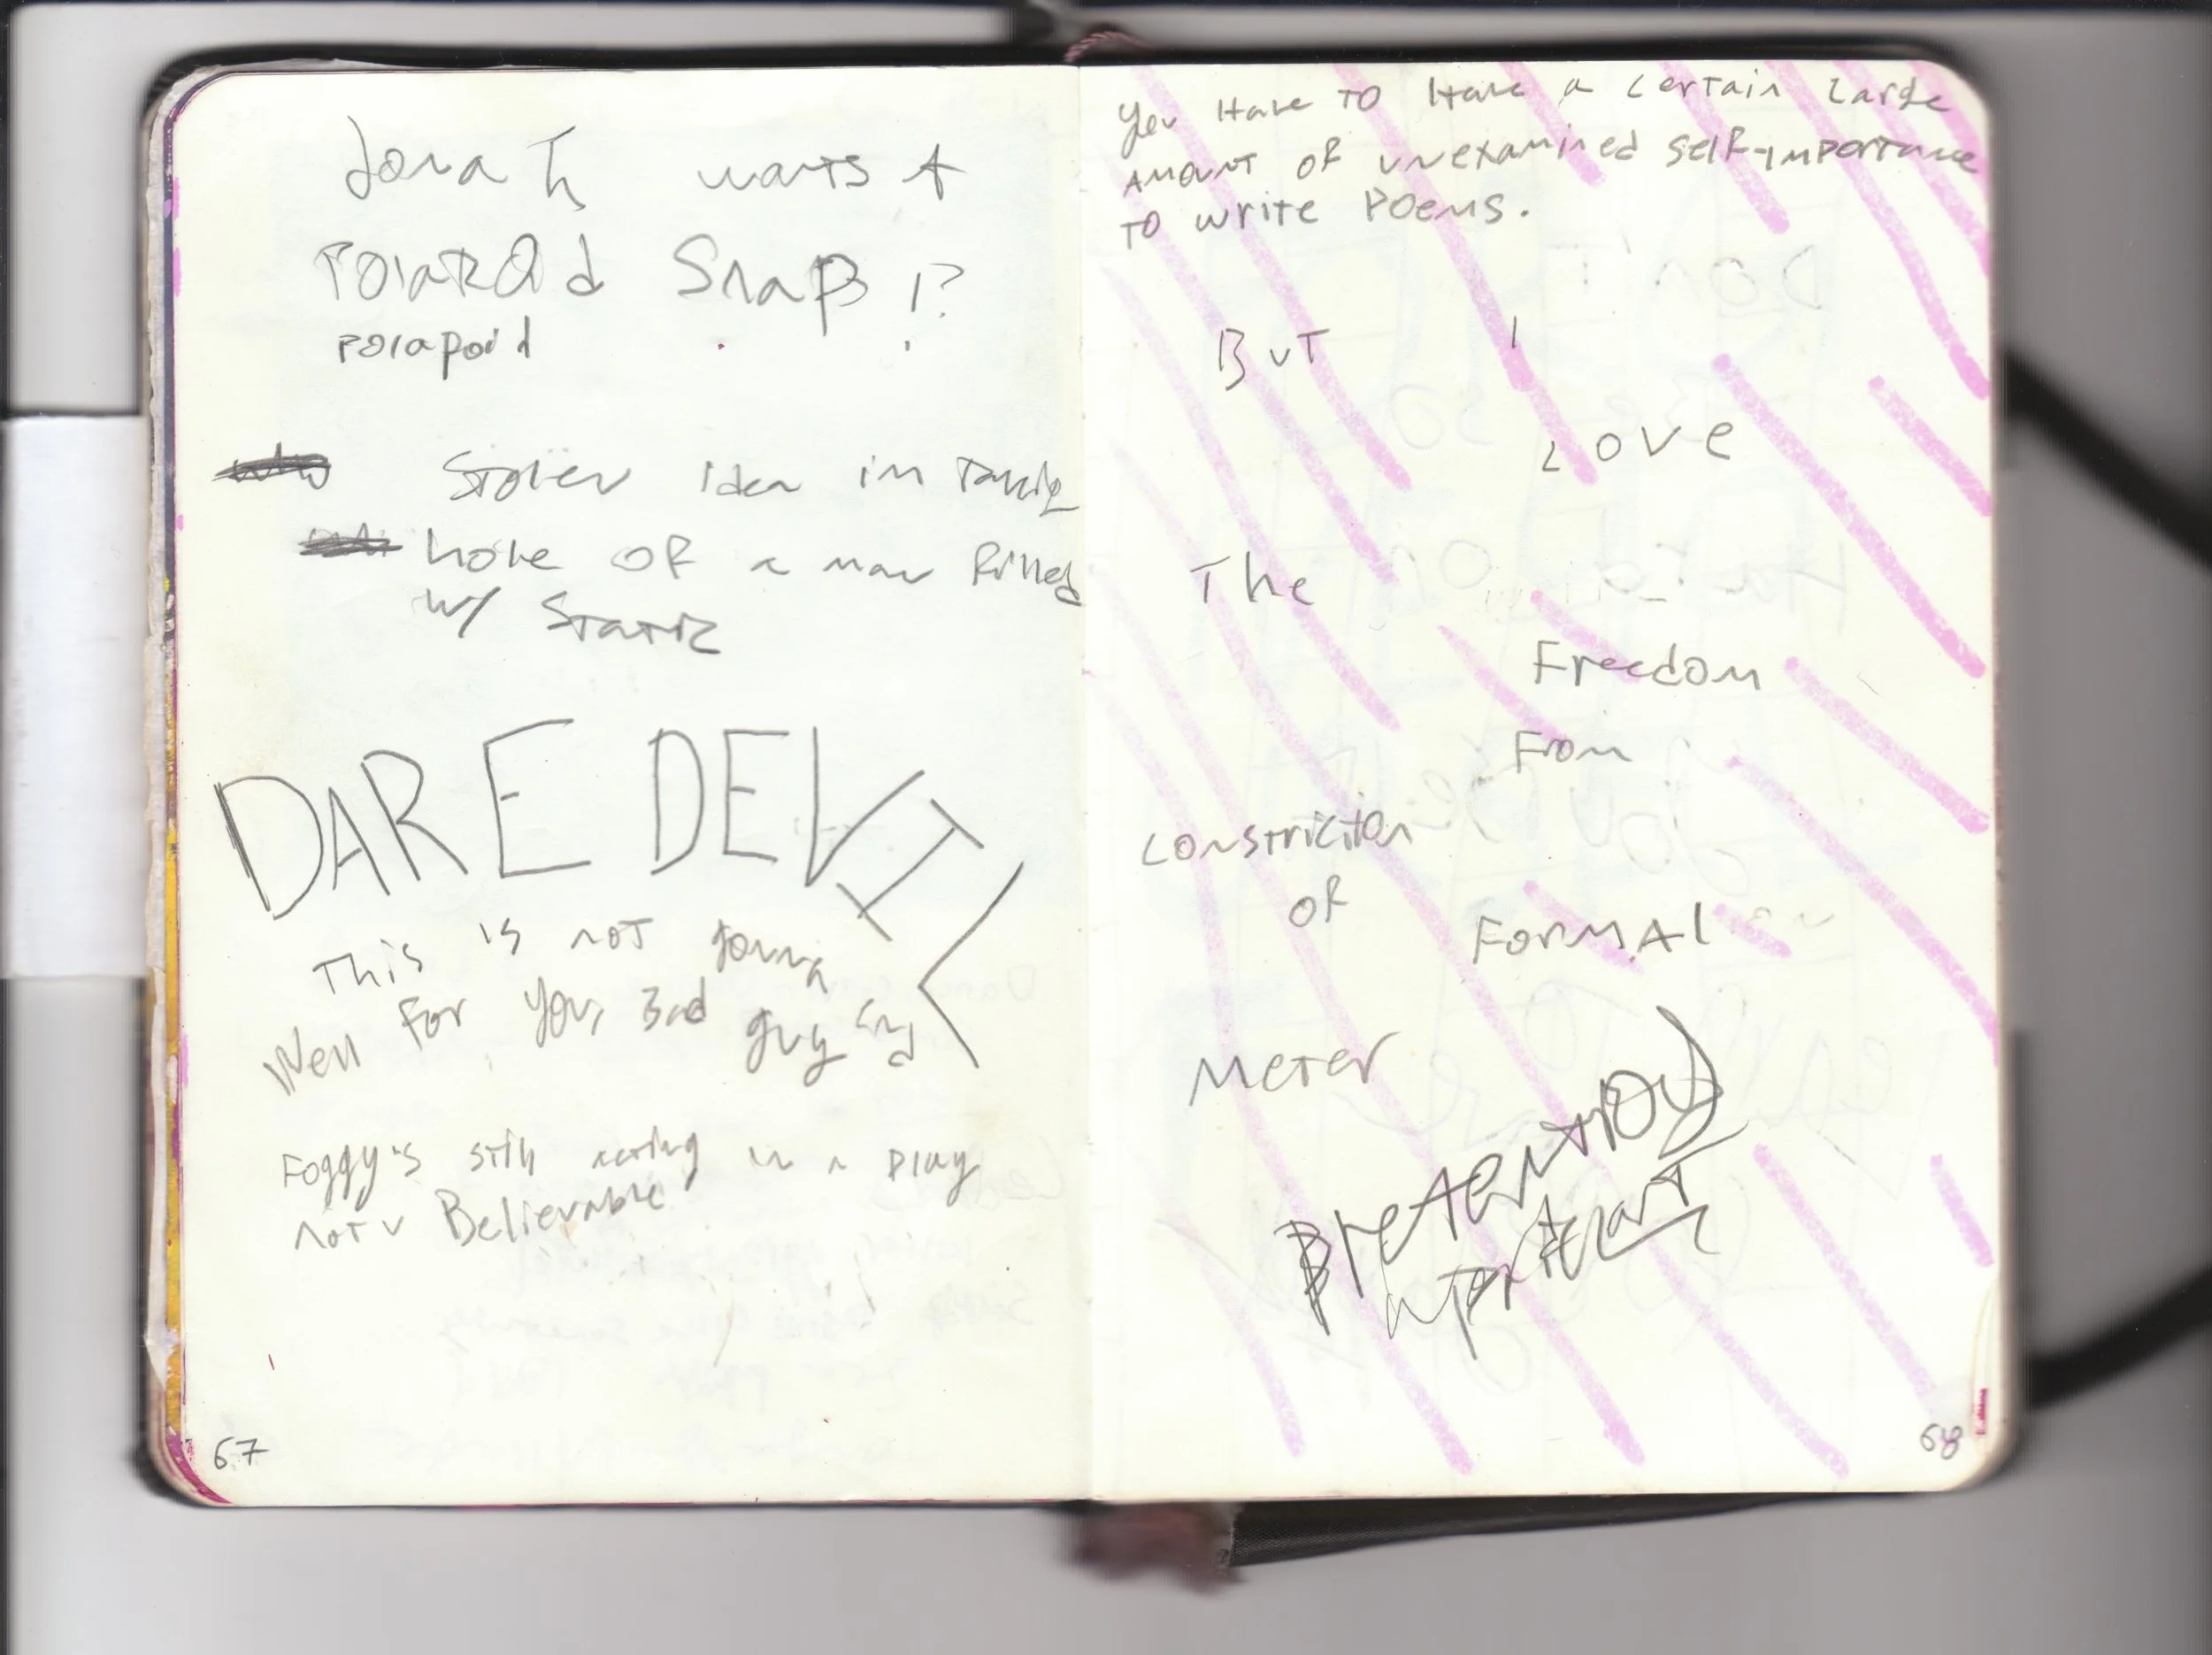 Jonah wants A
Polaroid Snap!?
Polapoid
Stolen idea in
hole of a man filled
w/ Static
DARE DEVIL
This is not gonna
Well For you, Bad guy
Foggy's still acting in a play
not v Believable
67
You Have TO Have a certain large
AMOUNT OF unexamined self-importance
TO write Poems.
BuT I
Love
The
Freedom
From
constriciton
of
FormAl
Meter
Pretentious
68